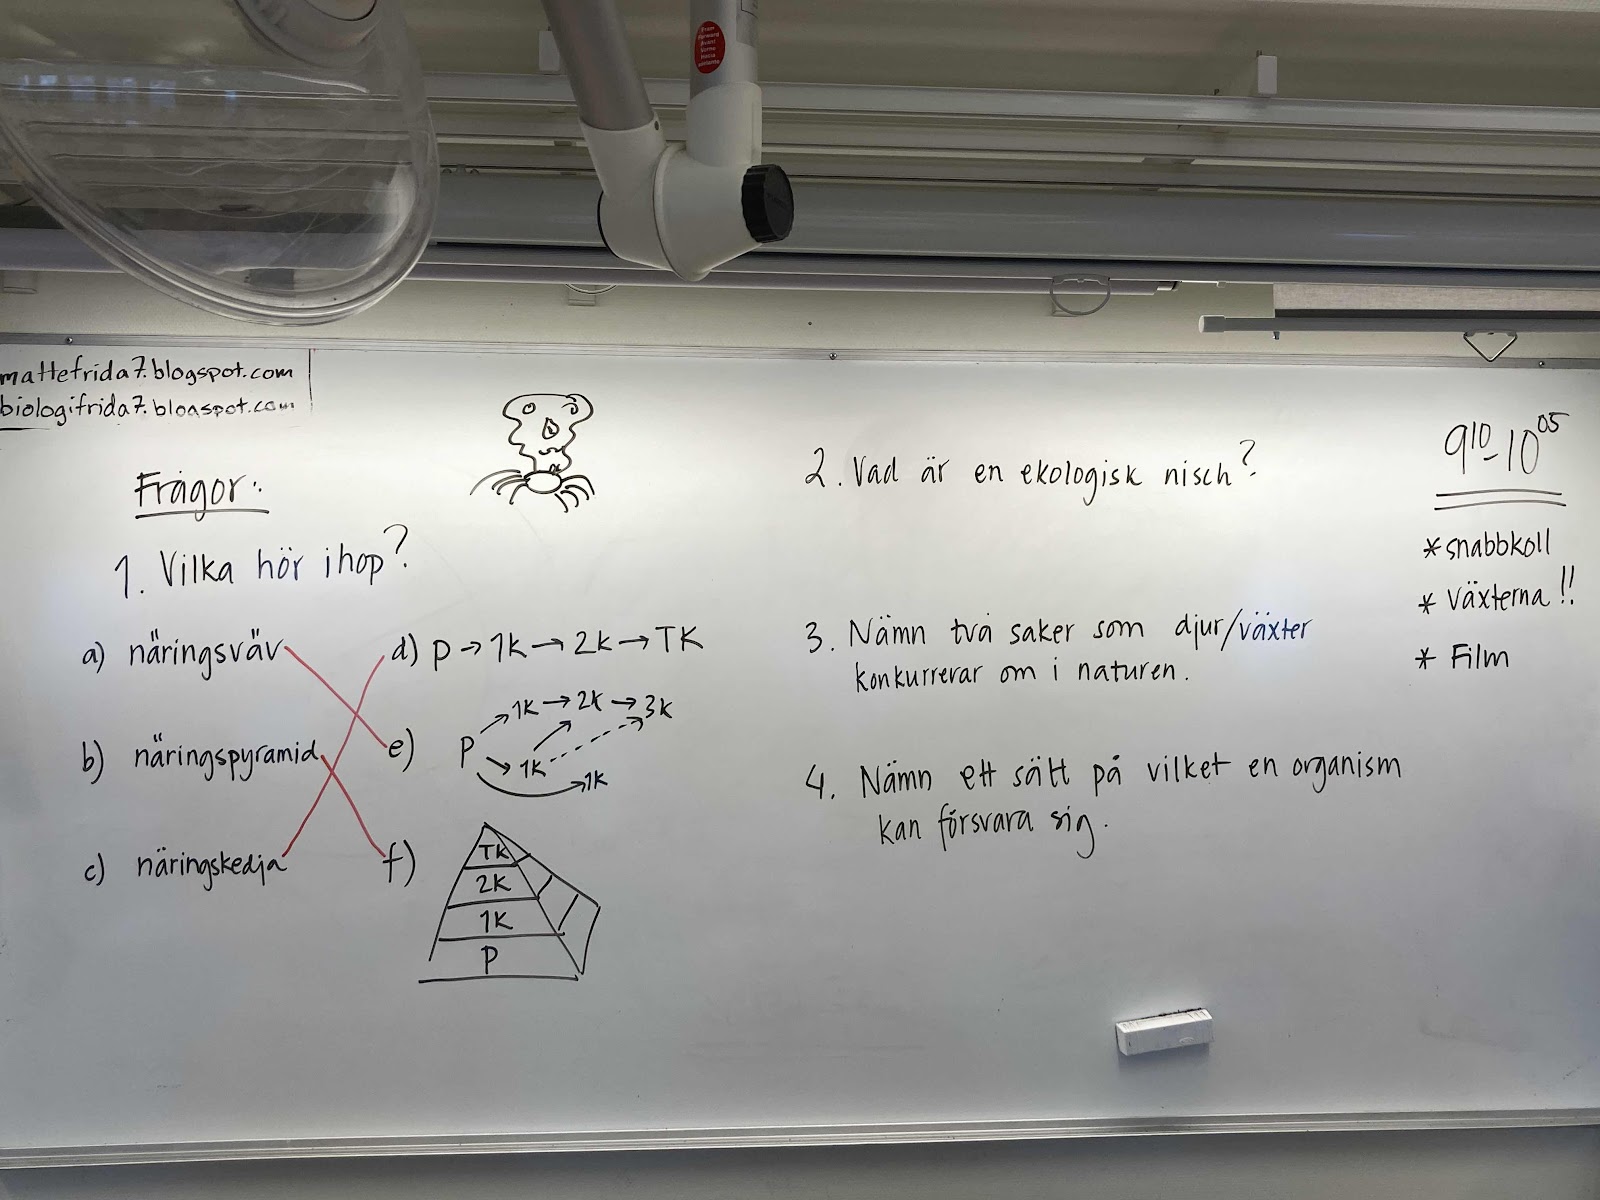 From
Forward
Avant
Vorne
mattefrida7.blogspot.com
biologifrida7.blogspot.com
Frågor:
1. Vilka hör ihop?
a) näringsväv
b) näringspyramid
c) näringskedja
d) P → 1K → 2K → TK
e) P
1K → 2K → 3K
1K
1K
f)
TK
2K
1K
P
2. Vad är en ekologisk nisch?
3. Nämn två saker som djur/växter
konkurrerar om i naturen.
4. Nämn ett sätt på vilket en organism
kan försvara sig.
9¹⁰-10⁰⁵
* snabbkoll
* växterna!!
* Film